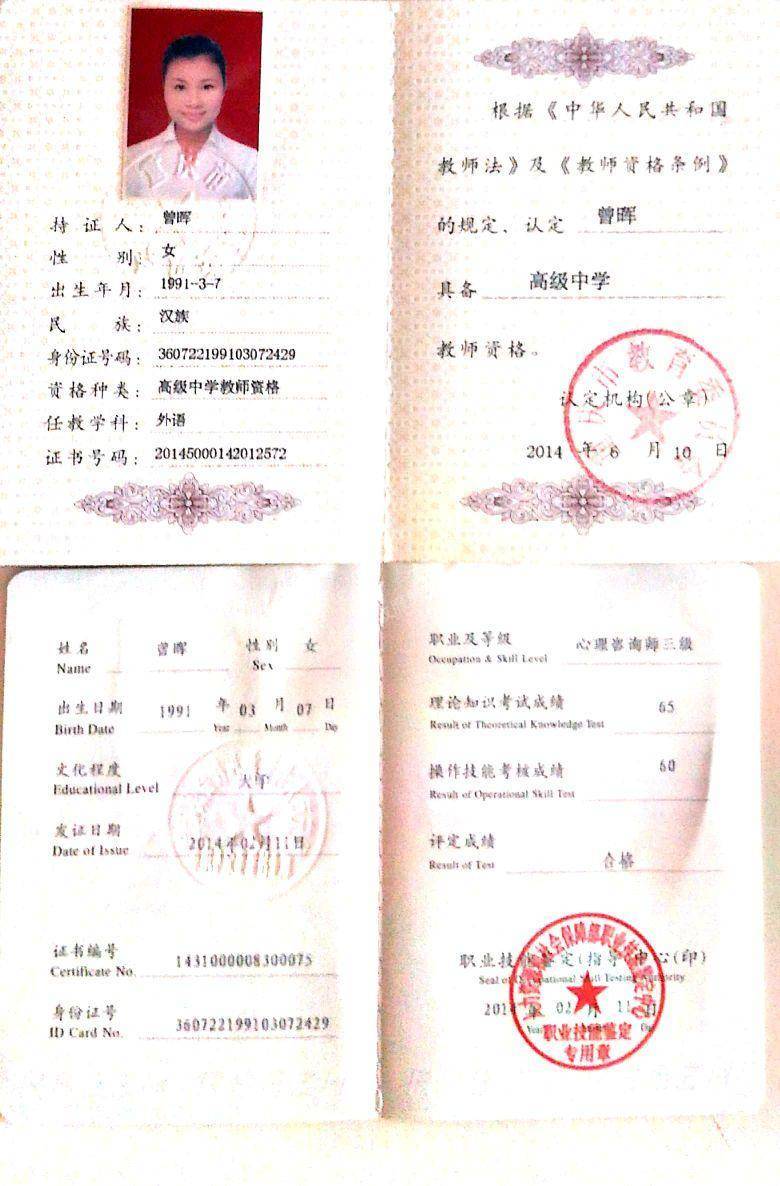 持证人：曾晖
性别：女
出生年月：1991-3-7
民族：汉族
身份证号码：360722199103072429
资格种类：高级中学教师资格
任教学科：外语
证书号码：20145000142012572
根据《中华人民共和国
教师法》及《教师资格条例》
的规定，认定 曾晖
具备 高级中学
教师资格。
市教育委员会
认定机构(公章)
2014 年 6 月 10 日
姓名 曾晖 性别 女
Name Sex
出生日期 1991 年 03 月 07 日
Birth Date Year Month Day
文化程度 大专
Educational Level
发证日期 2014年02月11日
Date of Issue
证书编号 1431000008300075
Certificate No.
身份证号 360722199103072429
ID Card No.
职业及等级 心理咨询师三级
Occupation & Skill Level
理论知识考试成绩 65
Result of Theoretical Knowledge Test
操作技能考核成绩 60
Result of Operational Skill Test
评定成绩 合格
Result of Test
职业技能鉴定(指导)中心(印)
Seal of Occupational Skill Testing Authority
2014 年 02 月 11 日
Year Day
职业技能鉴定
专用章